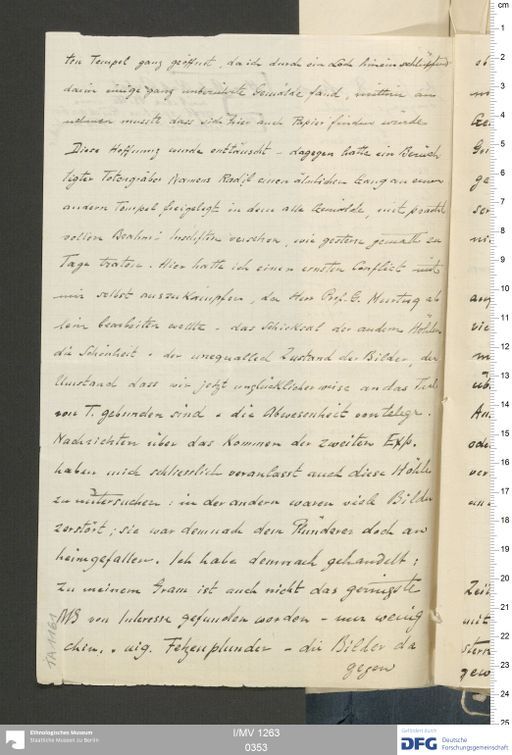 ten Tempel ganz geöffnet, da ich durch ein Loch hineinschlüpfend
darin einige ganz unberührte Gemälde fand, mithin an
nehmen musste dass sich hier auch Papier finden werde
Diese Hoffnung wurde enttäuscht – dagegen hatte ein Berüch
tigter Totengräber Namens einen ähnlichen Gang an einem
andern Tempel freigelegt in dem alle Gemälde, mit pracht
vollen Brahmi Inschriften versehen, wie gestern gemalt zu
Tage traten. Hier hatte ich einen ernsten Conflict mit
mir selbst auszukämpfen, da Herr Prof. G. Huth
allein bearbeiten wollte – das Schicksal der andern Höhlen
die Schönheit + der unequalled Zustand der Bilder, der
Umstand dass wir jetzt unglücklicher wise an das Tal
von T. gebunden sind + die Abwesenheit von telegr.
Nachrichten über das Kommen der zweiten Exp.
haben mich schliesslich veranlasst auch diese Höhle
zu untersuchen: in der andern waren viele Bilder
zerstört; sie war demnach dem Plünderer doch an
heimgefallen. Ich habe demnach gehandelt:
Zu meinem Gram ist auch nicht das geringste
MS von Interesse gefunden worden – nur wenig
chin. + uig. Fetzenplunder – die Bilder da
gegen
TA 1161
I/MV 1263
0353
Ethnologisches Museum
Staatliche Museen zu Berlin
Gefördert durch
DFG Deutsche
Forschungsgemeinschaft